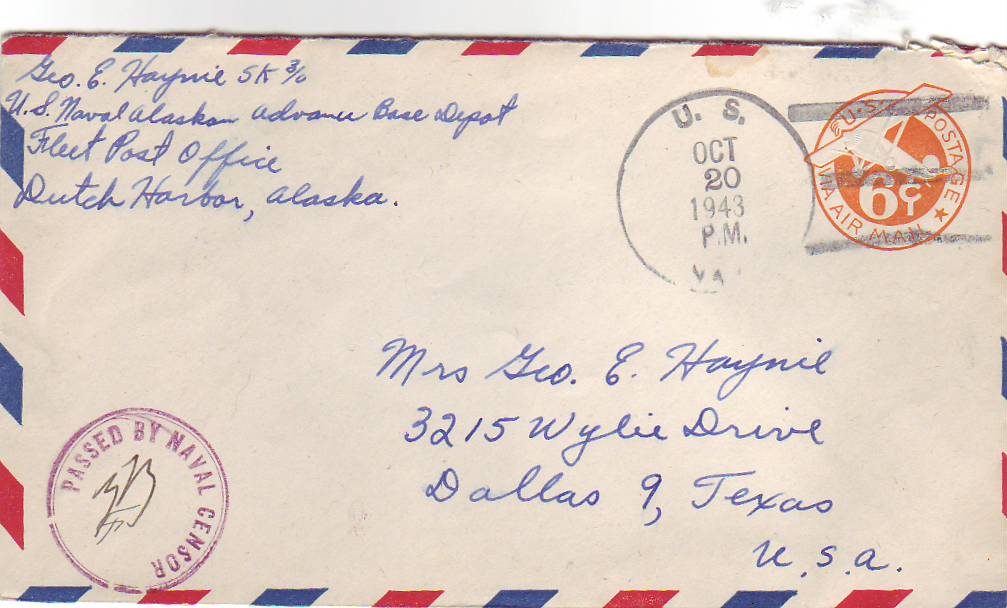 Geo. E. Haynie SK 3/c
U.S. Naval Alaskan Advance Base Depot
Fleet Post Office
Dutch Harbor, Alaska.
U. S.
OCT
20
1943
P.M.
U.S. POSTAGE
6¢
VIA AIR MAIL
Mrs Geo. E. Haynie
3215 Wylie Drive
Dallas 9, Texas
U.S.A.
PASSED BY NAVAL CENSOR